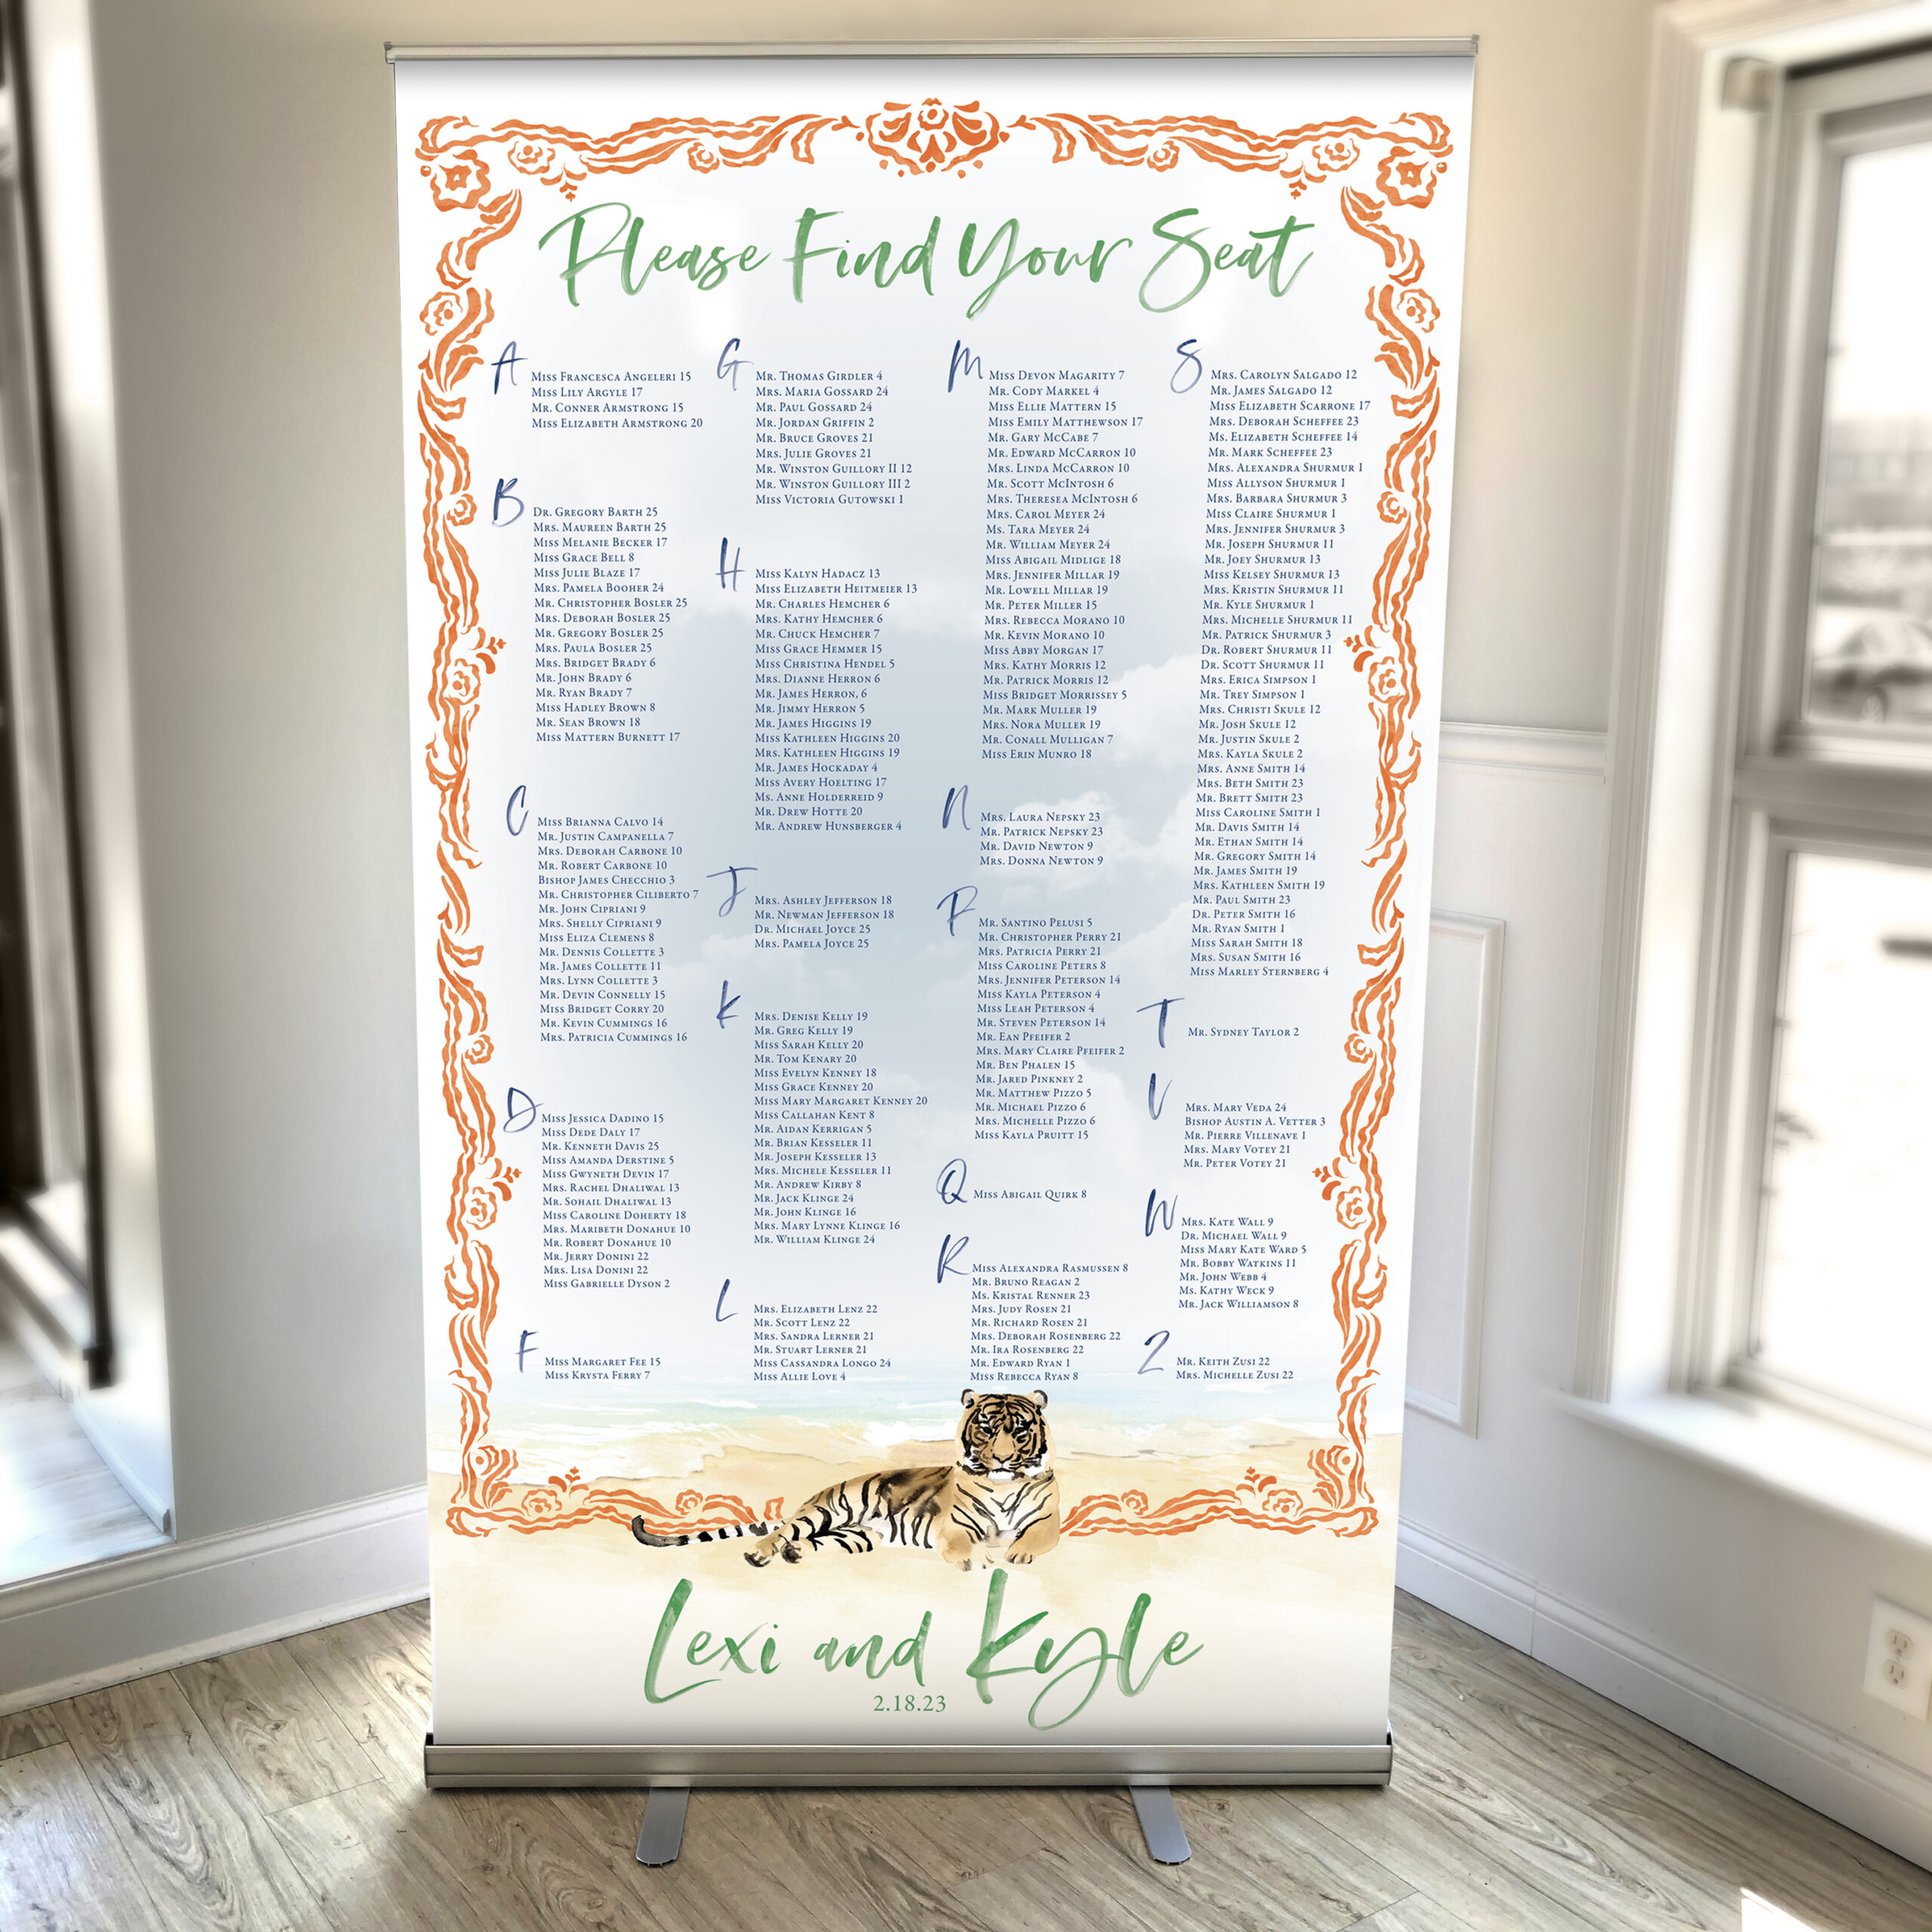 Please Find Your Seat
A
Miss Francesca Angeleri 15
Miss Lily Argyle 17
Mr. Conner Armstrong 15
Miss Elizabeth Armstrong 20
B
Dr. Gregory Barth 25
Mrs. Maureen Barth 25
Miss Melanie Becker 17
Miss Grace Bell 8
Miss Julie Blaze 17
Mrs. Pamela Booher 24
Mr. Christopher Bosler 25
Mrs. Deborah Bosler 25
Mr. Gregory Bosler 25
Mrs. Paula Bosler 25
Mrs. Bridget Brady 6
Mr. John Brady 6
Mr. Ryan Brady 7
Miss Hadley Brown 8
Mr. Sean Brown 18
Miss Mattern Burnett 17
C
Miss Brianna Calvo 14
Mr. Justin Campanella 7
Mrs. Deborah Carbone 10
Mr. Robert Carbone 10
Bishop James Checchio 3
Mr. Christopher Ciliberto 7
Mr. John Cipriani 9
Mrs. Shelly Cipriani 9
Miss Eliza Clemens 8
Mr. Dennis Collette 3
Mr. James Collette 11
Mrs. Lynn Collette 3
Mr. Devin Connelly 15
Miss Bridget Corry 20
Mr. Kevin Cummings 16
Mrs. Patricia Cummings 16
D
Miss Jessica Dadino 15
Miss Dede Daly 17
Mr. Kenneth Davis 25
Miss Amanda Derstine 5
Miss Gwyneth Devin 17
Mrs. Rachel Dhaliwal 13
Mr. Sohail Dhaliwal 13
Miss Caroline Doherty 18
Mrs. Maribeth Donahue 10
Mr. Robert Donahue 10
Mr. Jerry Donini 22
Mrs. Lisa Donini 22
Miss Gabrielle Dyson 2
F
Miss Margaret Fee 15
Miss Krysta Ferry 7
G
Mr. Thomas Girdler 4
Mrs. Maria Gossard 24
Mr. Paul Gossard 24
Mr. Jordan Griffin 2
Mr. Bruce Groves 21
Mrs. Julie Groves 21
Mr. Winston Guillory II 12
Mr. Winston Guillory III 2
Miss Victoria Gutowski 1
H
Miss Kalyn Hadacz 13
Miss Elizabeth Heitmeier 13
Mr. Charles Hemcher 6
Mrs. Kathy Hemcher 6
Mr. Chuck Hemcher 7
Miss Grace Hemmer 15
Miss Christina Hendel 5
Mrs. Dianne Herron 6
Mr. James Herron, 6
Mr. Jimmy Herron 5
Mr. James Higgins 19
Miss Kathleen Higgins 20
Mrs. Kathleen Higgins 19
Mr. James Hockaday 4
Miss Avery Hoelting 17
Ms. Anne Holderreid 9
Mr. Drew Hotte 20
Mr. Andrew Hunsberger 4
J
Mrs. Ashley Jefferson 18
Mr. Newman Jefferson 18
Dr. Michael Joyce 25
Mrs. Pamela Joyce 25
K
Mrs. Denise Kelly 19
Mr. Greg Kelly 19
Miss Sarah Kelly 20
Mr. Tom Kenary 20
Miss Evelyn Kenney 18
Miss Grace Kenney 20
Miss Mary Margaret Kenney 20
Miss Callahan Kent 8
Mr. Aidan Kerrigan 5
Mr. Brian Kesseler 11
Mr. Joseph Kesseler 13
Mrs. Michele Kesseler 11
Mr. Andrew Kirby 8
Mr. Jack Klinge 24
Mr. John Klinge 16
Mrs. Mary Lynne Klinge 16
Mr. William Klinge 24
L
Mrs. Elizabeth Lenz 22
Mr. Scott Lenz 22
Mrs. Sandra Lerner 21
Mr. Stuart Lerner 21
Miss Cassandra Longo 24
Miss Allie Love 4
M
Miss Devon Magarity 7
Mr. Cody Markel 4
Miss Ellie Mattern 15
Miss Emily Matthewson 17
Mr. Gary McCabe 7
Mr. Edward McCarron 10
Mrs. Linda McCarron 10
Mr. Scott McIntosh 6
Mrs. Theresea McIntosh 6
Mrs. Carol Meyer 24
Ms. Tara Meyer 24
Mr. William Meyer 24
Miss Abigail Midlige 18
Mrs. Jennifer Millar 19
Mr. Lowell Millar 19
Mr. Peter Miller 15
Mrs. Rebecca Morano 10
Mr. Kevin Morano 10
Miss Abby Morgan 17
Mrs. Kathy Morris 12
Mr. Patrick Morris 12
Miss Bridget Morrissey 5
Mr. Mark Muller 19
Mrs. Nora Muller 19
Mr. Conall Mulligan 7
Miss Erin Munro 18
N
Mrs. Laura Nepsky 23
Mr. Patrick Nepsky 23
Mr. David Newton 9
Mrs. Donna Newton 9
P
Mr. Santino Pelusi 5
Mr. Christopher Perry 21
Mrs. Patricia Perry 21
Miss Caroline Peters 8
Mrs. Jennifer Peterson 14
Miss Kayla Peterson 4
Miss Leah Peterson 4
Mr. Steven Peterson 14
Mr. Ean Pfeifer 2
Mrs. Mary Claire Pfeifer 2
Mr. Ben Phalen 15
Mr. Jared Pinkney 2
Mr. Matthew Pizzo 5
Mr. Michael Pizzo 6
Mrs. Michelle Pizzo 6
Miss Kayla Pruitt 15
Q
Miss Abigail Quirk 8
R
Miss Alexandra Rasmussen 8
Mr. Bruno Reagan 2
Ms. Kristal Renner 23
Mrs. Judy Rosen 21
Mr. Richard Rosen 21
Mrs. Deborah Rosenberg 22
Mr. Ira Rosenberg 22
Mr. Edward Ryan 1
Miss Rebecca Ryan 8
S
Mrs. Carolyn Salgado 12
Mr. James Salgado 12
Miss Elizabeth Scarrone 17
Mrs. Deborah Scheffee 23
Ms. Elizabeth Scheffee 14
Mr. Mark Scheffee 23
Mrs. Alexandra Shurmur 1
Miss Allyson Shurmur 1
Mrs. Barbara Shurmur 3
Miss Claire Shurmur 1
Mrs. Jennifer Shurmur 3
Mr. Joseph Shurmur 11
Mr. Joey Shurmur 13
Miss Kelsey Shurmur 13
Mrs. Kristin Shurmur 11
Mr. Kyle Shurmur 1
Mrs. Michelle Shurmur 11
Mr. Patrick Shurmur 3
Dr. Robert Shurmur 11
Dr. Scott Shurmur 11
Mrs. Erica Simpson 1
Mr. Trey Simpson 1
Mrs. Christi Skule 12
Mr. Josh Skule 12
Mr. Justin Skule 2
Mrs. Kayla Skule 2
Mrs. Anne Smith 14
Mrs. Beth Smith 23
Mr. Brett Smith 23
Miss Caroline Smith 1
Mr. Davis Smith 14
Mr. Ethan Smith 14
Mr. Gregory Smith 14
Mr. James Smith 19
Mrs. Kathleen Smith 19
Mr. Paul Smith 23
Dr. Peter Smith 16
Mr. Ryan Smith 1
Miss Sarah Smith 18
Mrs. Susan Smith 16
Miss Marley Sternberg 4
T
Mr. Sydney Taylor 2
V
Mrs. Mary Veda 24
Bishop Austin A. Vetter 3
Mr. Pierre Villenave 1
Mrs. Mary Votey 21
Mr. Peter Votey 21
W
Mrs. Kate Wall 9
Dr. Michael Wall 9
Miss Mary Kate Ward 5
Mr. Bobby Watkins 11
Mr. John Webb 4
Ms. Kathy Weck 9
Mr. Jack Williamson 8
Z
Mr. Keith Zusi 22
Mrs. Michelle Zusi 22
Lexi and Kyle
2.18.23